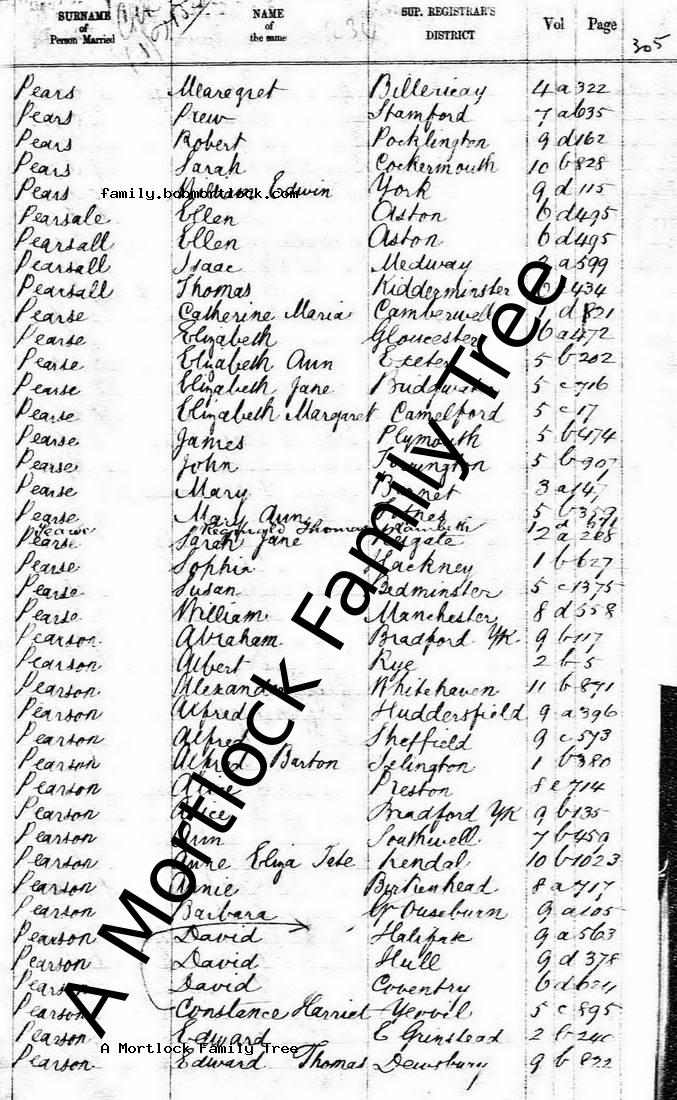 SURNAME of Person Married NAME of the same SUP. REGISTRAR'S DISTRICT Vol Page
305
Pears Mearegret Billericay 4 a 322
Pears Prew Stamford 7 a 635
Pears Robert Pocklington 9 d 162
Pears Sarah Cockermouth 10 b 828
Pears William Edwin York 9 d 115
family.bobmortlock.com
Pearsale Ellen Aston 6 d 495
Pearsall Ellen Aston 6 d 495
Pearsall Isaac Medway a 599
Pearsall Thomas Kidderminster 434
Pearse Catherine Maria Camberwell 1 d 821
Pearse Elizabeth Gloucester 6 a 472
Pearse Elizabeth Ann Exeter 5 b 202
Pearse Elizabeth Jane Bridgwater 5 c 716
Pearse Elizabeth Margaret Camelford 5 c 17
Pearse James Plymouth 5 b 474
Pearse John Torrington 5 b 907
Pearse Mary Barnet 3 a 147
Pearse Mary Ann Totnes 5 b 359
Pearse Reginald Thomas Lambeth 1 d 671
Pearse Sarah Jane Reigate 2 a 268
Pearse Sophia Hackney 1 b 627
Pearse Susan Bedminster 5 c 1375
Pearse William Manchester 8 d 558
Pearson Abraham Bradford YK 9 b 117
Pearson Albert Rye 2 b 5
Pearson Alexander Whitehaven 11 b 871
Pearson Alfred Huddersfield 9 a 396
Pearson Alfred Sheffield 9 c 573
Pearson Alfred Barton Islington 1 b 380
Pearson Alice Preston 8 e 714
Pearson Alice Bradford YK 9 b 135
Pearson Ann Southwell 7 b 459
Pearson Anne Eliza Tate Kendal 10 b 1023
Pearson Annie Birkenhead 8 a 717
Pearson Barbara Gt Ouseburn 9 a 105
Pearson David Halifax 9 a 563
Pearson David Hull 9 d 378
Pearson David Coventry 6 d 624
Pearson Constance Harriet Yeovil 5 c 895
Pearson Edward E Grinstead 2 b 240
A Mortlock Family Tree
Pearson Edward Thomas Dewsbury 9 b 822
A Mortlock Family Tree